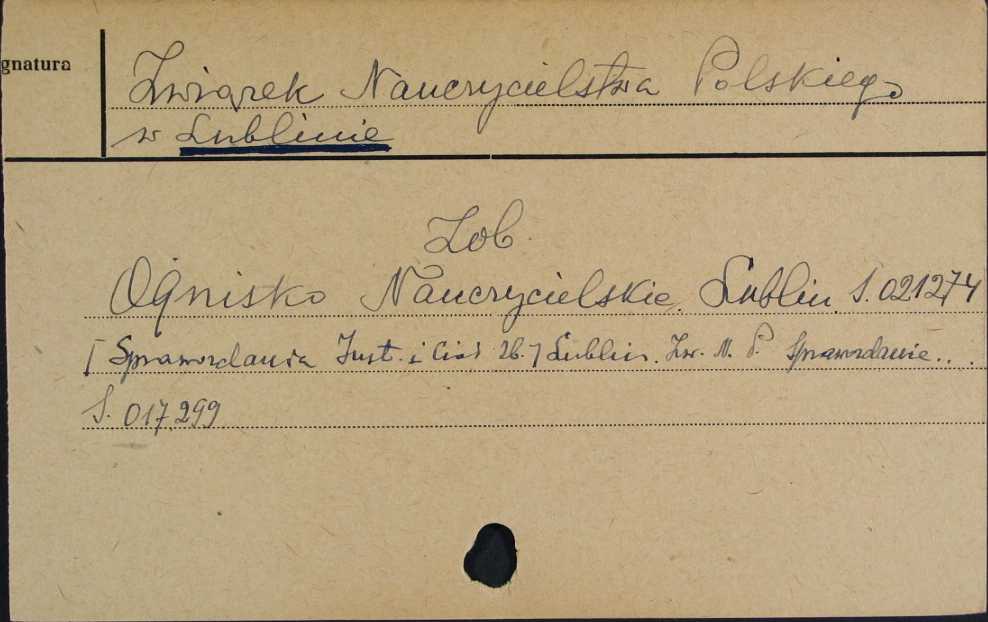 gnatura
Związek Nauczycielstwa Polskiego
w Lublinie
Zob.
Ognisko Nauczycielskie. Lublin. S. 021274
[Sprawozdania Inst. i Ciał Zb.] Lublin. Zw. N. P. Sprawozdanie...
S. 017.299